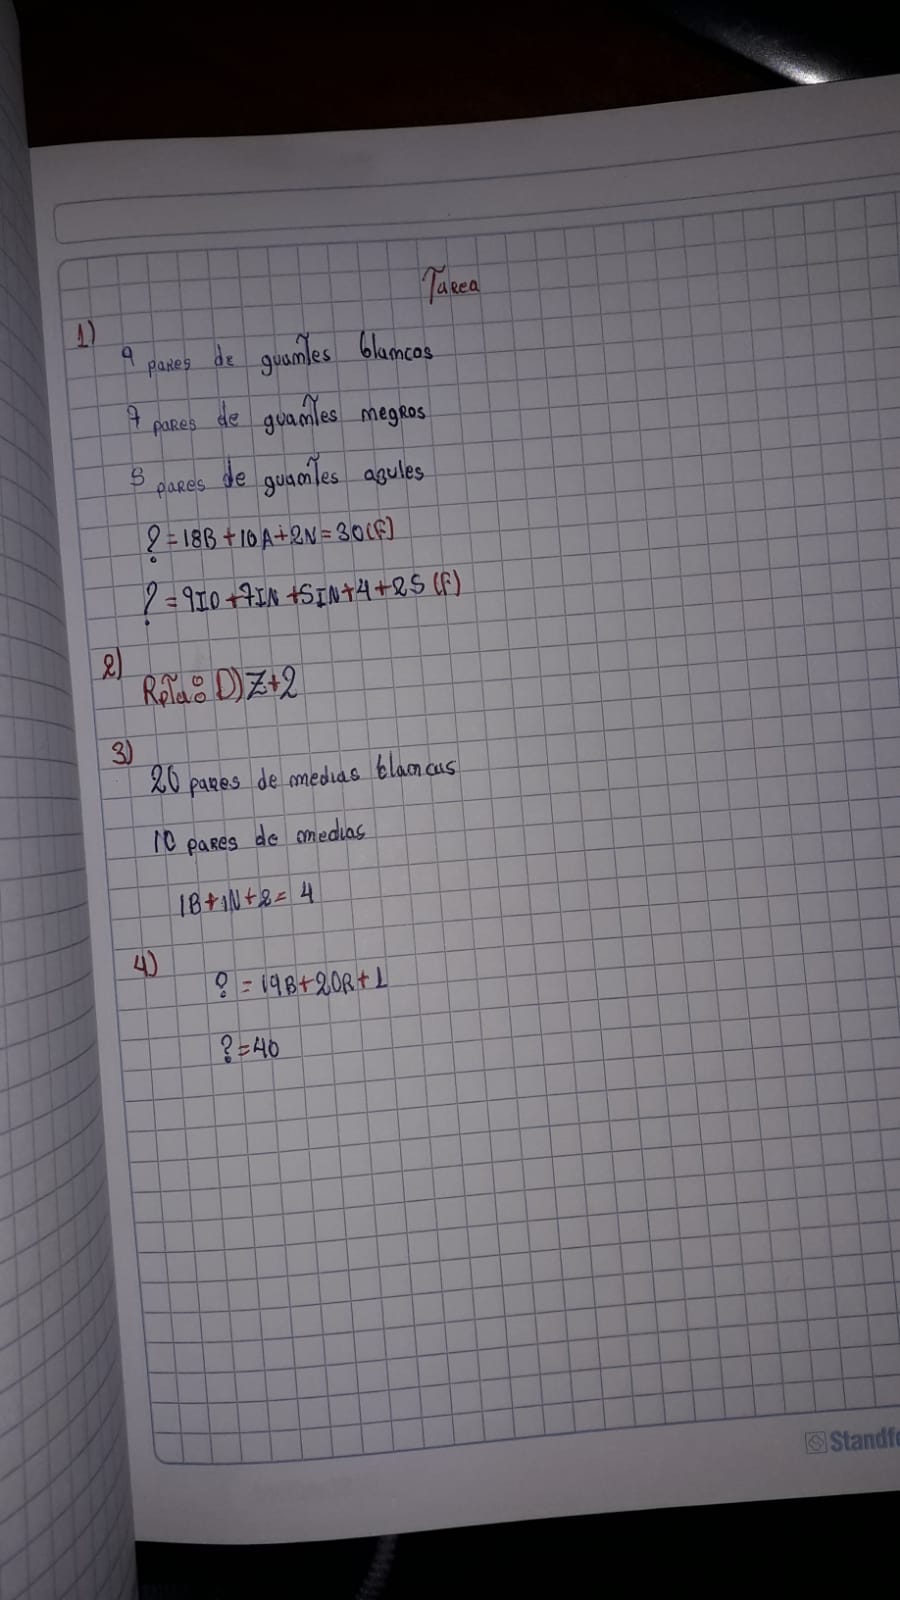 Tarea
1)
9 pares de guantes blancos
7 pares de guantes negros
5 pares de guantes asules
? = 18B + 10A + 2N = 30 (F)
? = 9ID + 7IN + 5IN + 4 + 25 (F)
2)
Rpta: D) Z + 2
3)
20 pares de medias blancas
10 pares de medias
1B + 1N + 2 = 4
4)
? = 19B + 20R + 1
? = 40